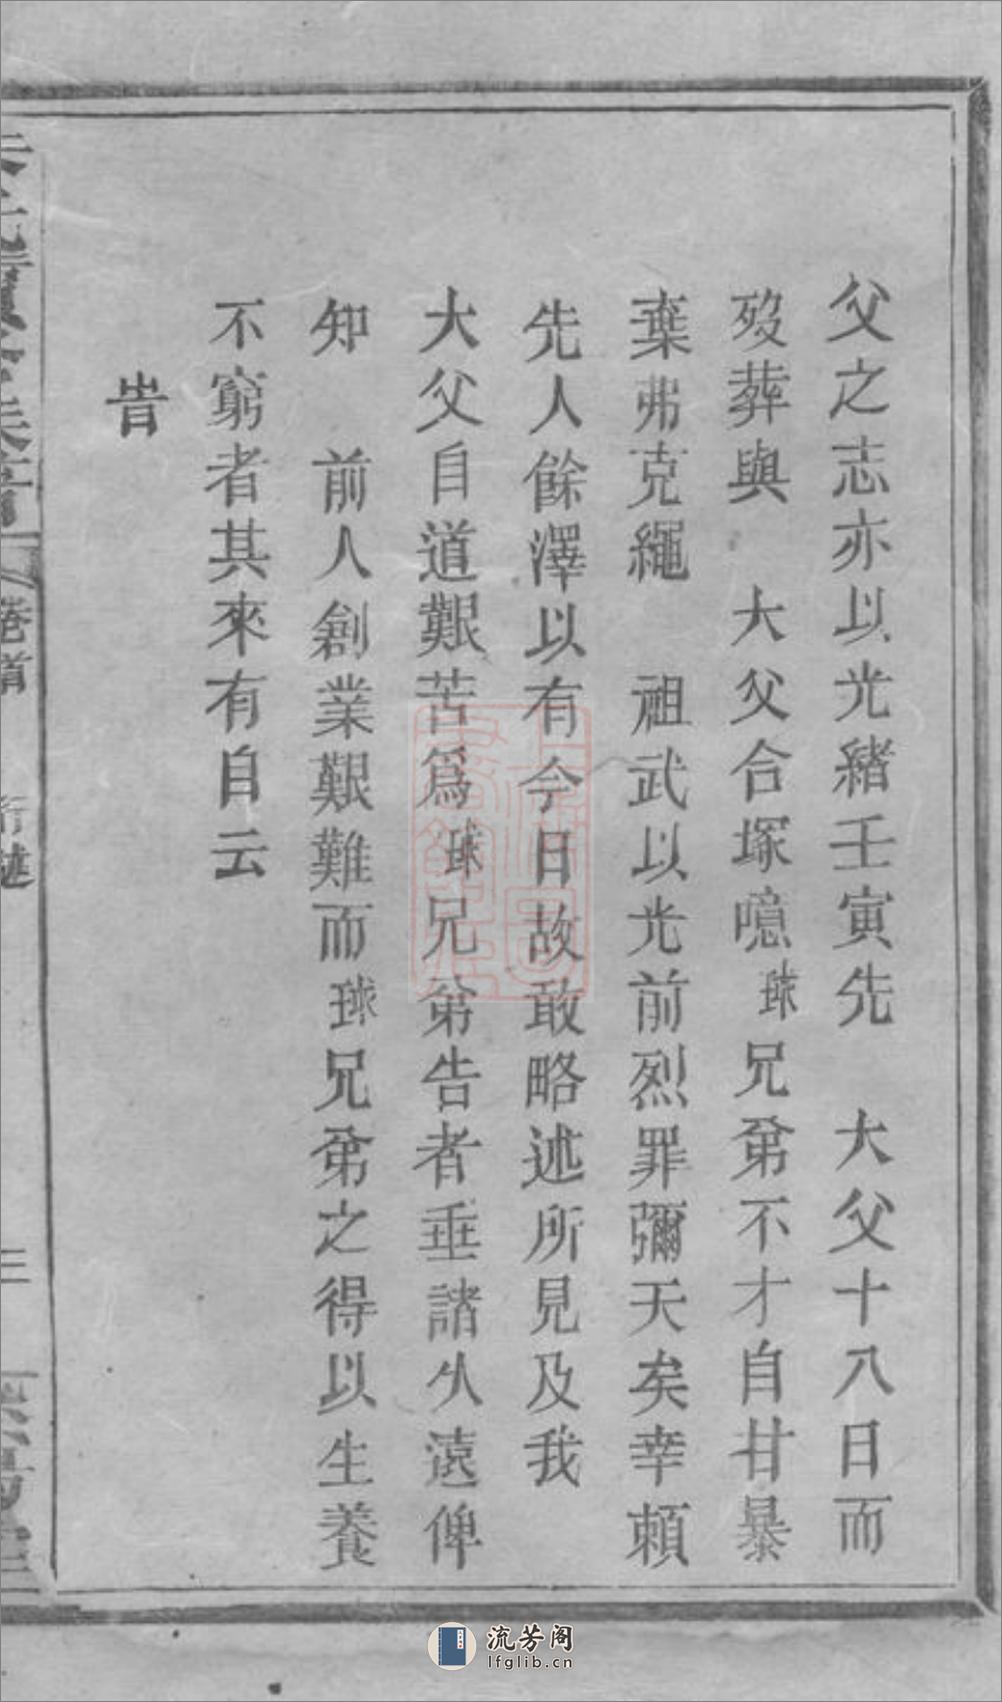 父之志亦以光緒壬寅先　大父十八日而
歿葬與　大父合塚噫球兄弟不才自甘暴
棄弗克繩　祖武以光前烈罪彌天矣幸賴
先人餘澤以有今日故敢略述所見及我
大父自道艱苦爲球兄弟告者垂諸久遠俾
知　前人創業艱難而球兄弟之得以生養
不窮者其來有自云
旹
卷首
行述
三
流芳阁
lfglib.cn